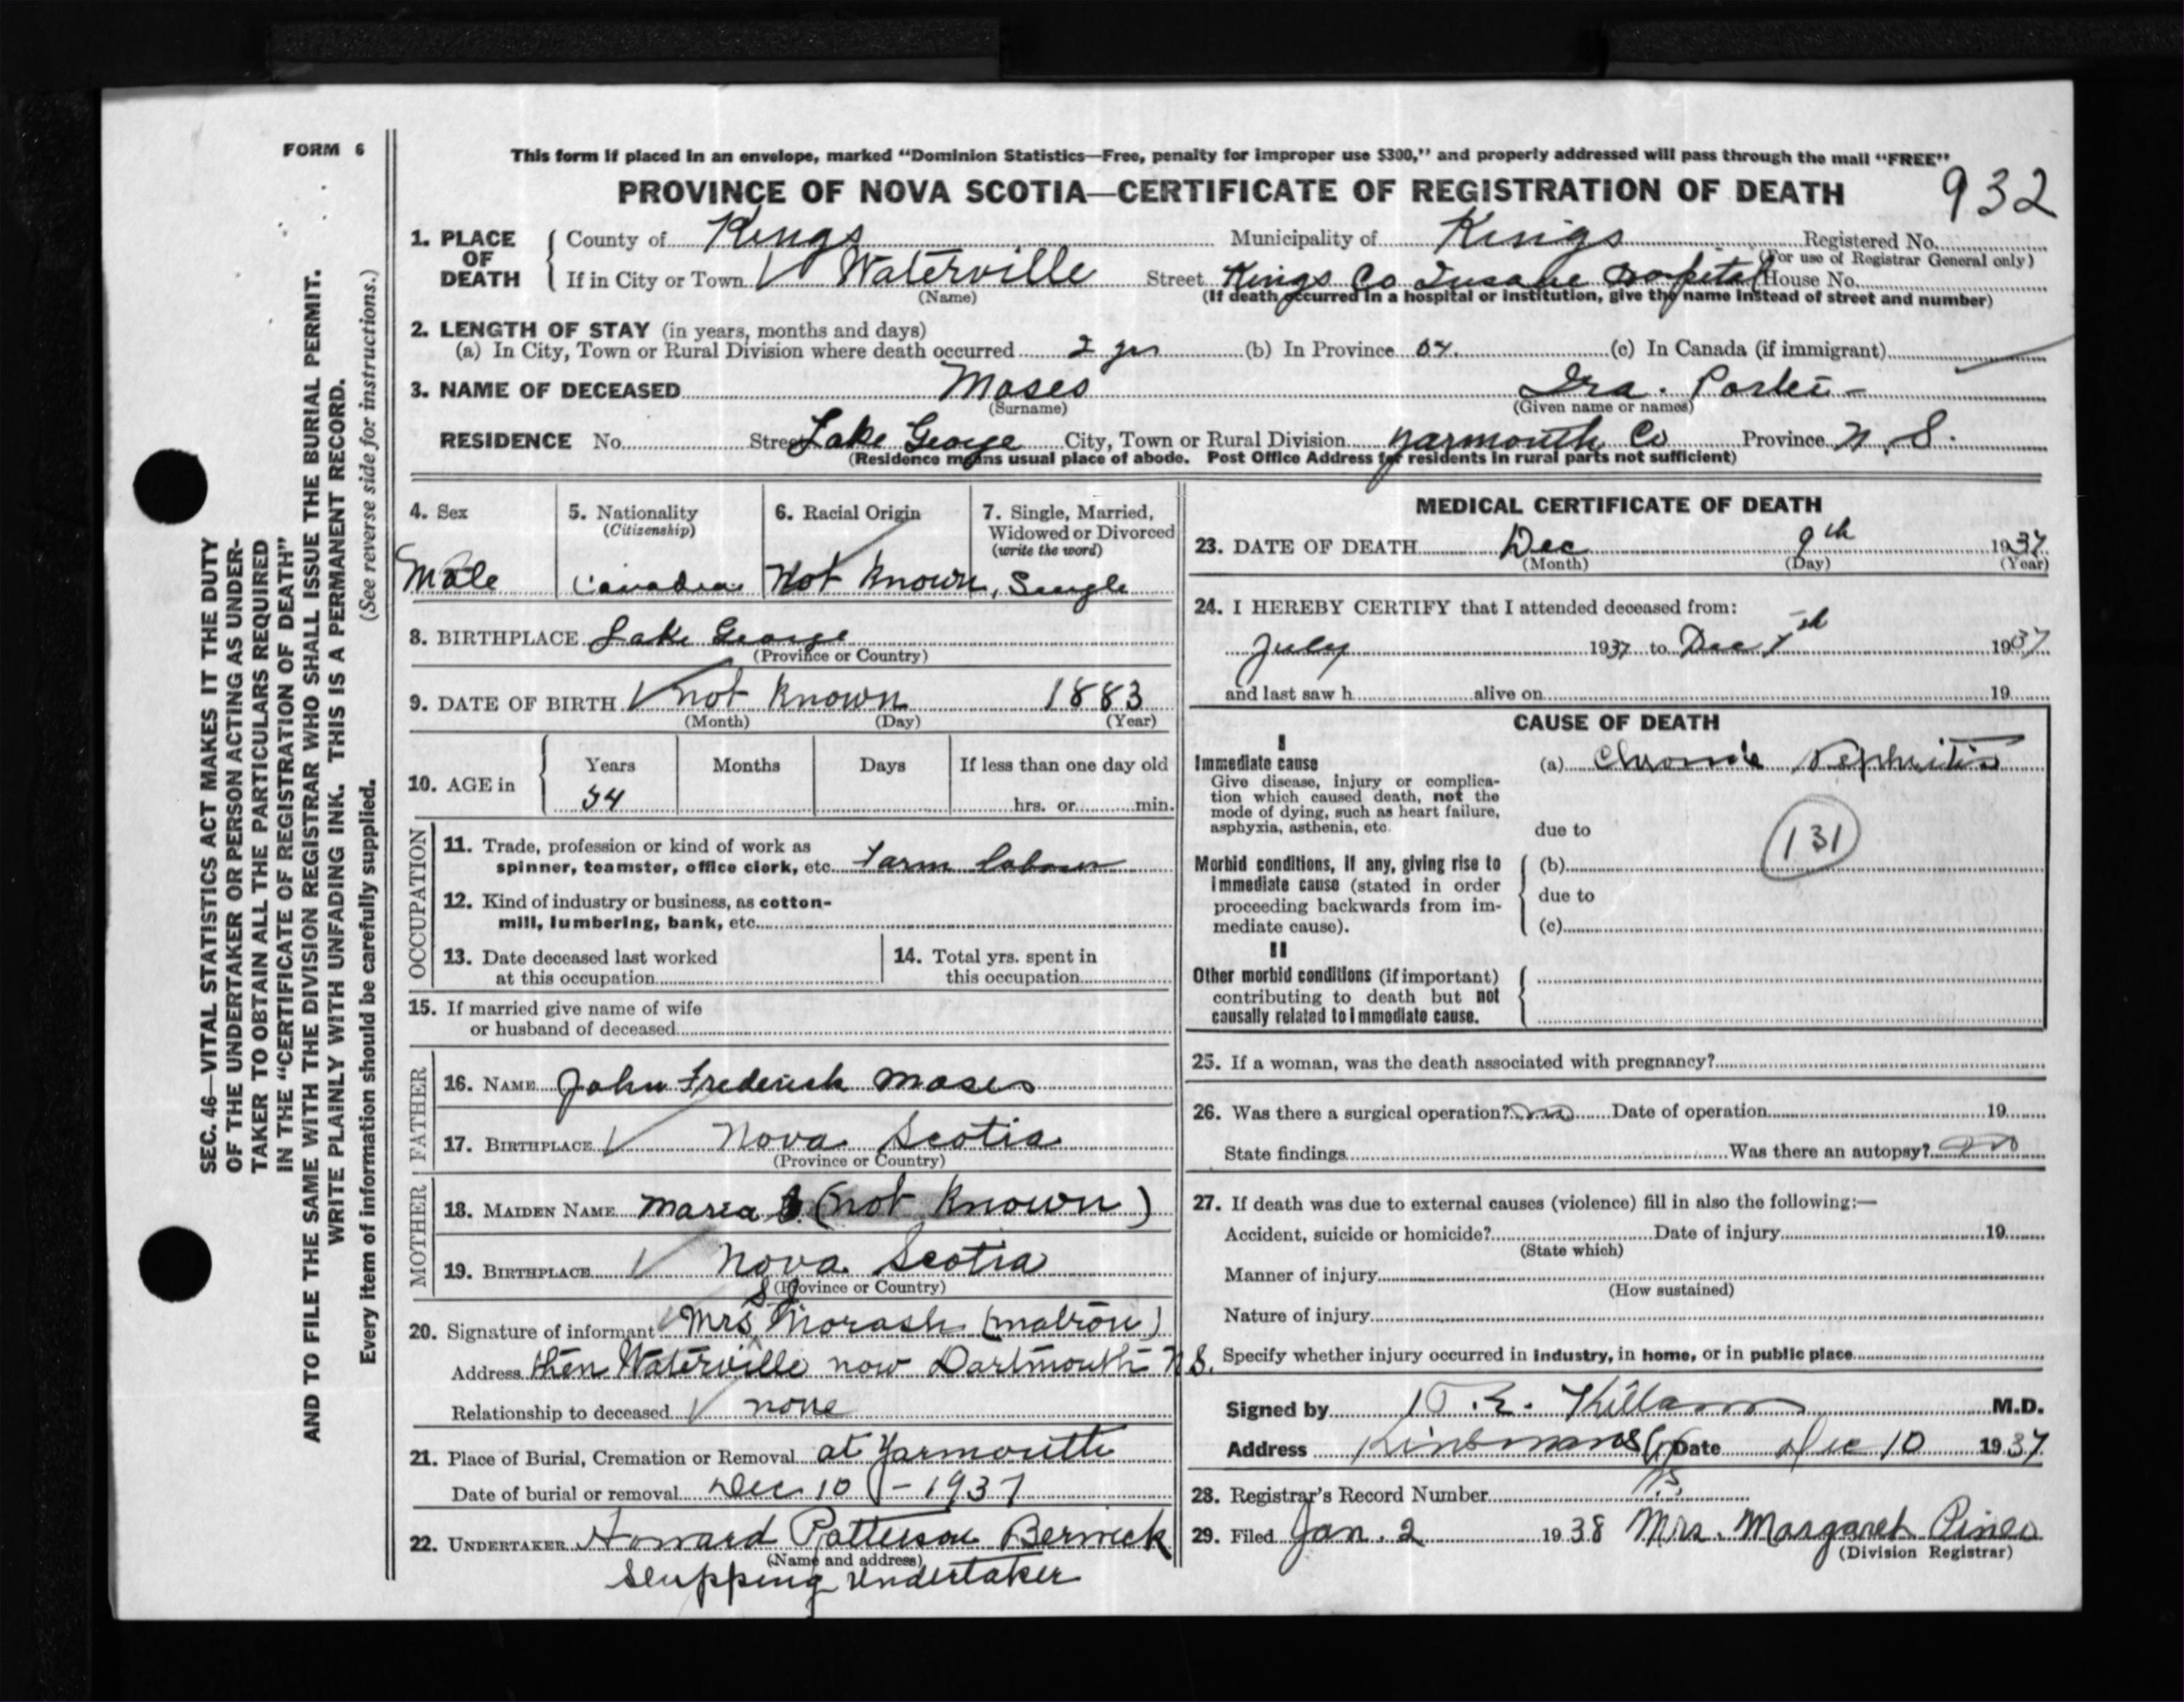 FORM 6
This form if placed in an envelope, marked "Dominion Statistics—Free, penalty for improper use $300," and properly addressed will pass through the mail "FREE"
PROVINCE OF NOVA SCOTIA—CERTIFICATE OF REGISTRATION OF DEATH 932
1. PLACE OF DEATH
County of Kings Municipality of Kings Registered No.
(For use of Registrar General only)
If in City or Town Waterville Street Kings Co Insane Hospital House No.
(Name) (If death occurred in a hospital or institution, give the name instead of street and number)
2. LENGTH OF STAY (in years, months and days)
(a) In City, Town or Rural Division where death occurred 2 yrs (b) In Province 54. (c) In Canada (if immigrant)
3. NAME OF DECEASED Moses Ira. Porter
(Surname) (Given name or names)
RESIDENCE No. Street Lake George City, Town or Rural Division Yarmouth Co Province N.S.
(Residence means usual place of abode. Post Office Address for residents in rural parts not sufficient)
4. Sex
Male
5. Nationality
(Citizenship)
Canadian
6. Racial Origin
Not Known,
7. Single, Married,
Widowed or Divorced
(write the word)
Single
8. BIRTHPLACE Lake George
(Province or Country)
9. DATE OF BIRTH not known 1883
(Month) (Day) (Year)
10. AGE in
Years Months Days If less than one day old
54 hrs. or min.
OCCUPATION
11. Trade, profession or kind of work as
spinner, teamster, office clerk, etc. Farm labour
12. Kind of industry or business, as cotton-
mill, lumbering, bank, etc.
13. Date deceased last worked
at this occupation
14. Total yrs. spent in
this occupation
15. If married give name of wife
or husband of deceased
FATHER
16. NAME John Frederick Moses
17. BIRTHPLACE Nova Scotia
(Province or Country)
MOTHER
18. MAIDEN NAME Maria (not known)
19. BIRTHPLACE Nova Scotia
(Province or Country)
20. Signature of informant Mrs Morash (matron)
Address then Waterville now Dartmouth N.S.
Relationship to deceased none
21. Place of Burial, Cremation or Removal at Yarmouth
Date of burial or removal Dec 10 - 1937
22. UNDERTAKER Howard Patterson Berwick
(Name and address)
Shipping Undertaker
MEDICAL CERTIFICATE OF DEATH
23. DATE OF DEATH Dec 9th 1937
(Month) (Day) (Year)
24. I HEREBY CERTIFY that I attended deceased from:
July 1937 to Dec 1937
and last saw h alive on 19
CAUSE OF DEATH
I
Immediate cause
Give disease, injury or complica-
tion which caused death, not the
mode of dying, such as heart failure,
asphyxia, asthenia, etc.
(a) Chronic Nephritis
due to 131
Morbid conditions, if any, giving rise to
immediate cause (stated in order
proceeding backwards from im-
mediate cause).
(b)
due to
(c)
II
Other morbid conditions (if important)
contributing to death but not
causally related to immediate cause.
25. If a woman, was the death associated with pregnancy?
26. Was there a surgical operation? no Date of operation 19
State findings Was there an autopsy? no
27. If death was due to external causes (violence) fill in also the following:—
Accident, suicide or homicide? Date of injury 19
(State which)
Manner of injury
(How sustained)
Nature of injury
Specify whether injury occurred in industry, in home, or in public place
Signed by E. Killam M.D.
Address Kinsmans Date Dec 10 1937
28. Registrar's Record Number
29. Filed Jan. 2 1938 Mrs. Margaret Pineo
(Division Registrar)
SEC. 46—VITAL STATISTICS ACT MAKES IT THE DUTY
OF THE UNDERTAKER OR PERSON ACTING AS UNDER-
TAKER TO OBTAIN ALL THE PARTICULARS REQUIRED
IN THE "CERTIFICATE OF REGISTRATION OF DEATH"
AND TO FILE THE SAME WITH THE DIVISION REGISTRAR WHO SHALL ISSUE THE BURIAL PERMIT.
WRITE PLAINLY WITH UNFADING INK. THIS IS A PERMANENT RECORD.
Every item of information should be carefully supplied. (See reverse side for instructions.)